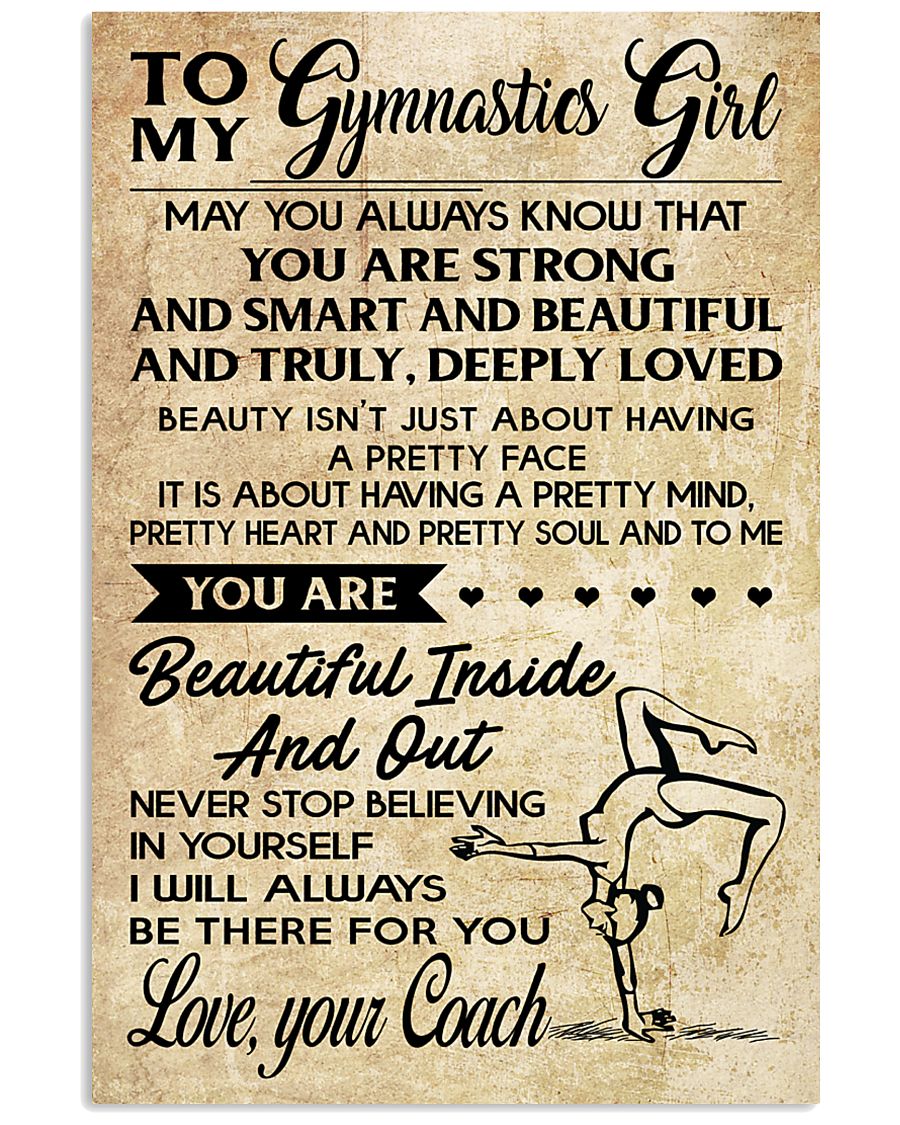 TO MY Gymnastics Girl
MAY YOU ALWAYS KNOW THAT
YOU ARE STRONG
AND SMART AND BEAUTIFUL
AND TRULY, DEEPLY LOVED
BEAUTY ISN'T JUST ABOUT HAVING
A PRETTY FACE
IT IS ABOUT HAVING A PRETTY MIND,
PRETTY HEART AND PRETTY SOUL AND TO ME
YOU ARE
Beautiful Inside
And Out
NEVER STOP BELIEVING
IN YOURSELF
I WILL ALWAYS
BE THERE FOR YOU
Love, your Coach